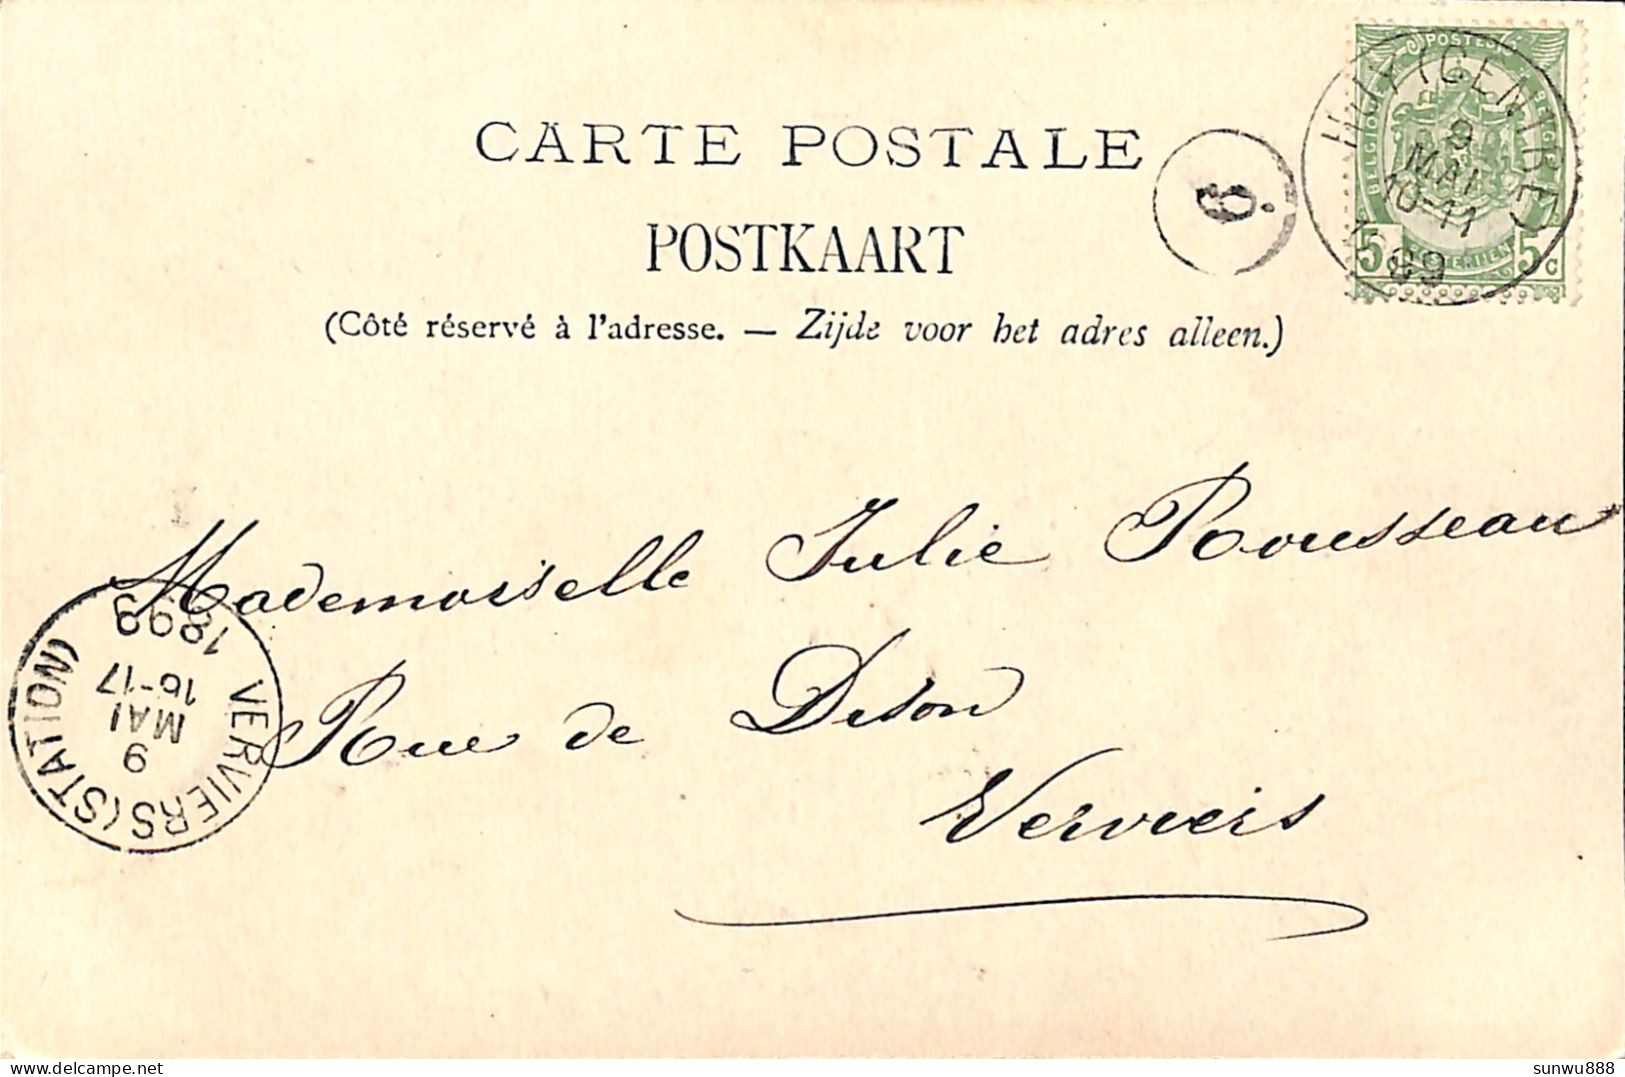 CARTE POSTALE
POSTKAART
(Côté réservé à l'adresse. — Zijde voor het adres alleen.)
POSTES
BELGIQUE BELGIË
5 CENTIEMEN 5 C
HUY (CENTRE)
9
MAI
10-11
1899
6
Mademoiselle Julie Rousseau
Rue de Dison
Verviers
VERVIERS (STATION)
9
MAI
16-17
1899
delcampe.net
sunwu888